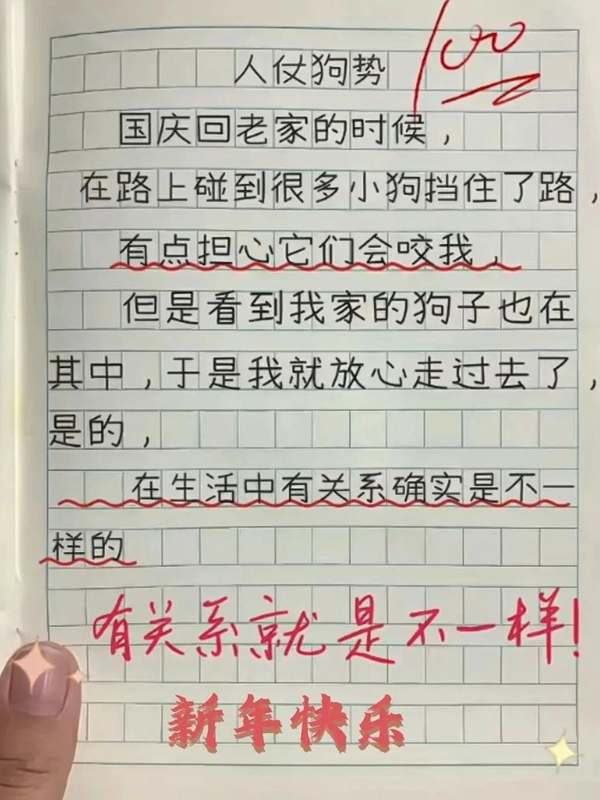 人仗狗势
100
国庆回老家的时候，
在路上碰到很多小狗挡住了路，
有点担心它们会咬我，
但是看到我家的狗子也在
其中，于是我就放心走过去了，
是的，
在生活中有关系确实是不一
样的
有关系就是不一样！
新年快乐